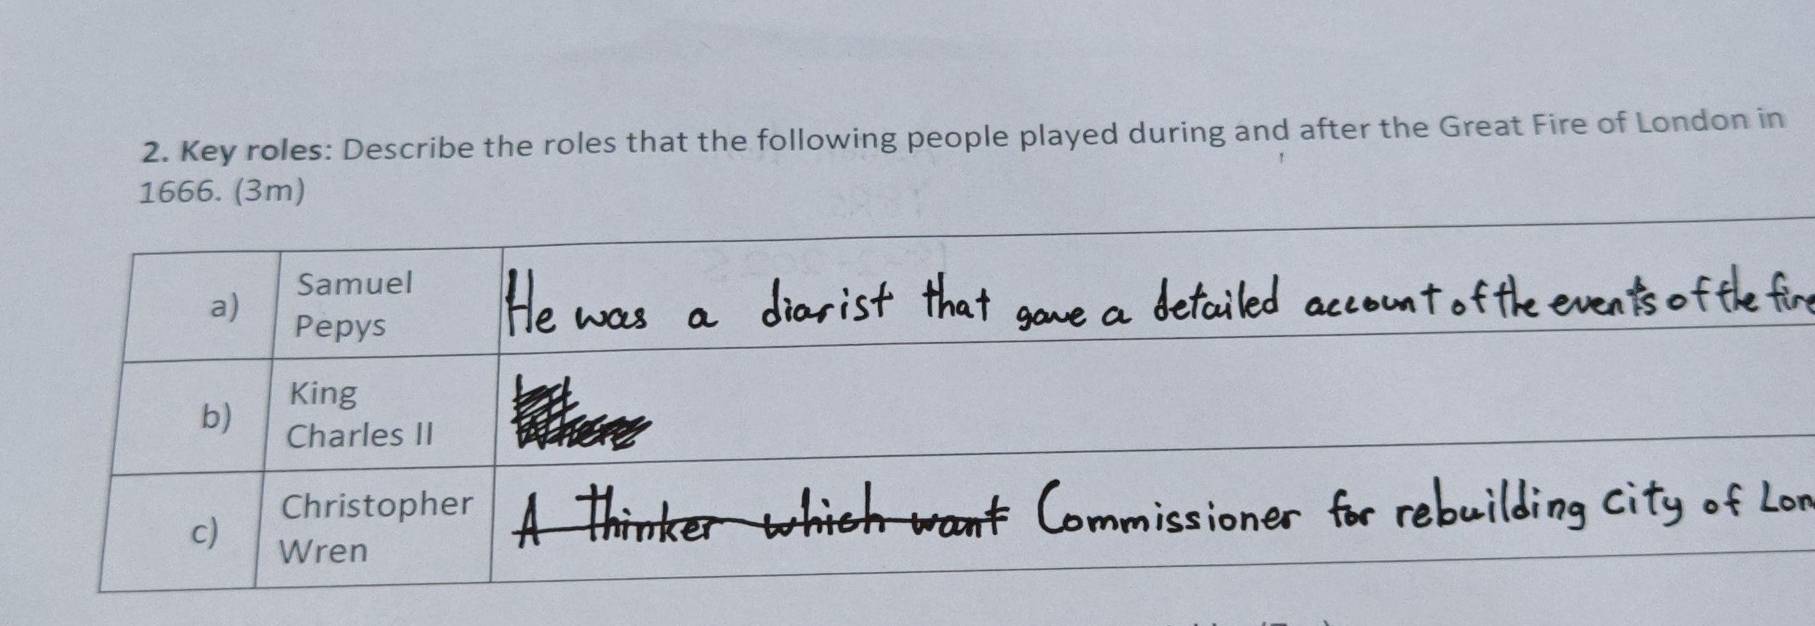 2. Key roles: Describe the roles that the following people played during and after the Great Fire of London in
1666. (3m)
a) Samuel Pepys He was a diarist that gave a detailed account of the events of the fire
b) King Charles II
c) Christopher Wren A thinker which want Commissioner for rebuilding City of Lon